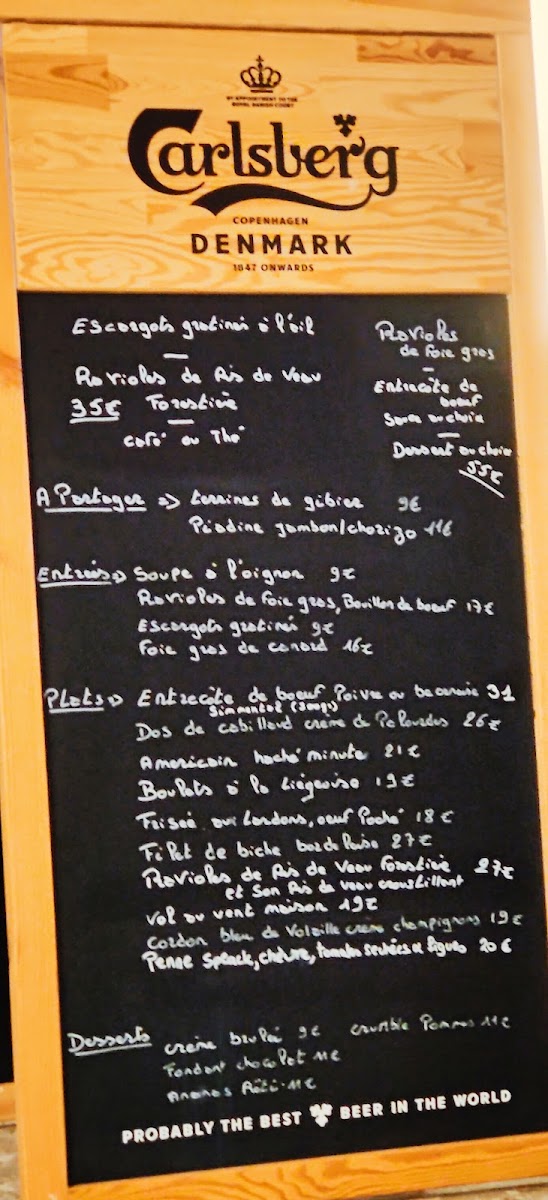 BY APPOINTMENT TO THE
ROYAL DANISH COURT
Carlsberg
COPENHAGEN
DENMARK
1847 ONWARDS
Escargots gratinés à l'ail
Ravioles de Ris de Veau
35€ Forestière
Café ou Thé
Ravioles
de foie gras
Entrecôte de
boeuf
Sauce au choix
Dessert au choix
55€
A Partager => Terrines de gibier 9€
Piadine jambon/chorizo 11€
Entrées => Soupe à l'oignon 9€
Ravioles de foie gras, Bouillon de boeuf 17€
Escargots gratinés 9€
Foie gras de canard 16€
Plats => Entrecôte de boeuf Poivre ou bearnaise 31
Simmental (300gs)
Dos de cabillaud crème de Palourdes 26€
Americain haché minute 21€
Boulets à la Liégeoise 19€
Frisée aux Lardons, oeuf Poché 18€
Filet de biche bordelaise 27€
Ravioles de Ris de Veau Forestière 27€
et Son Ris de veau croustillant
Vol au vent maison 19€
Cordon bleu de Volaille crème champignons 19€
Penne Speack, chèvre, tomates séchées et figues 20€
Desserts crème brulée 9€ crumble Pommes 11€
Fondant chocolat 11€
Ananas Rôti 11€
PROBABLY THE BEST BEER IN THE WORLD